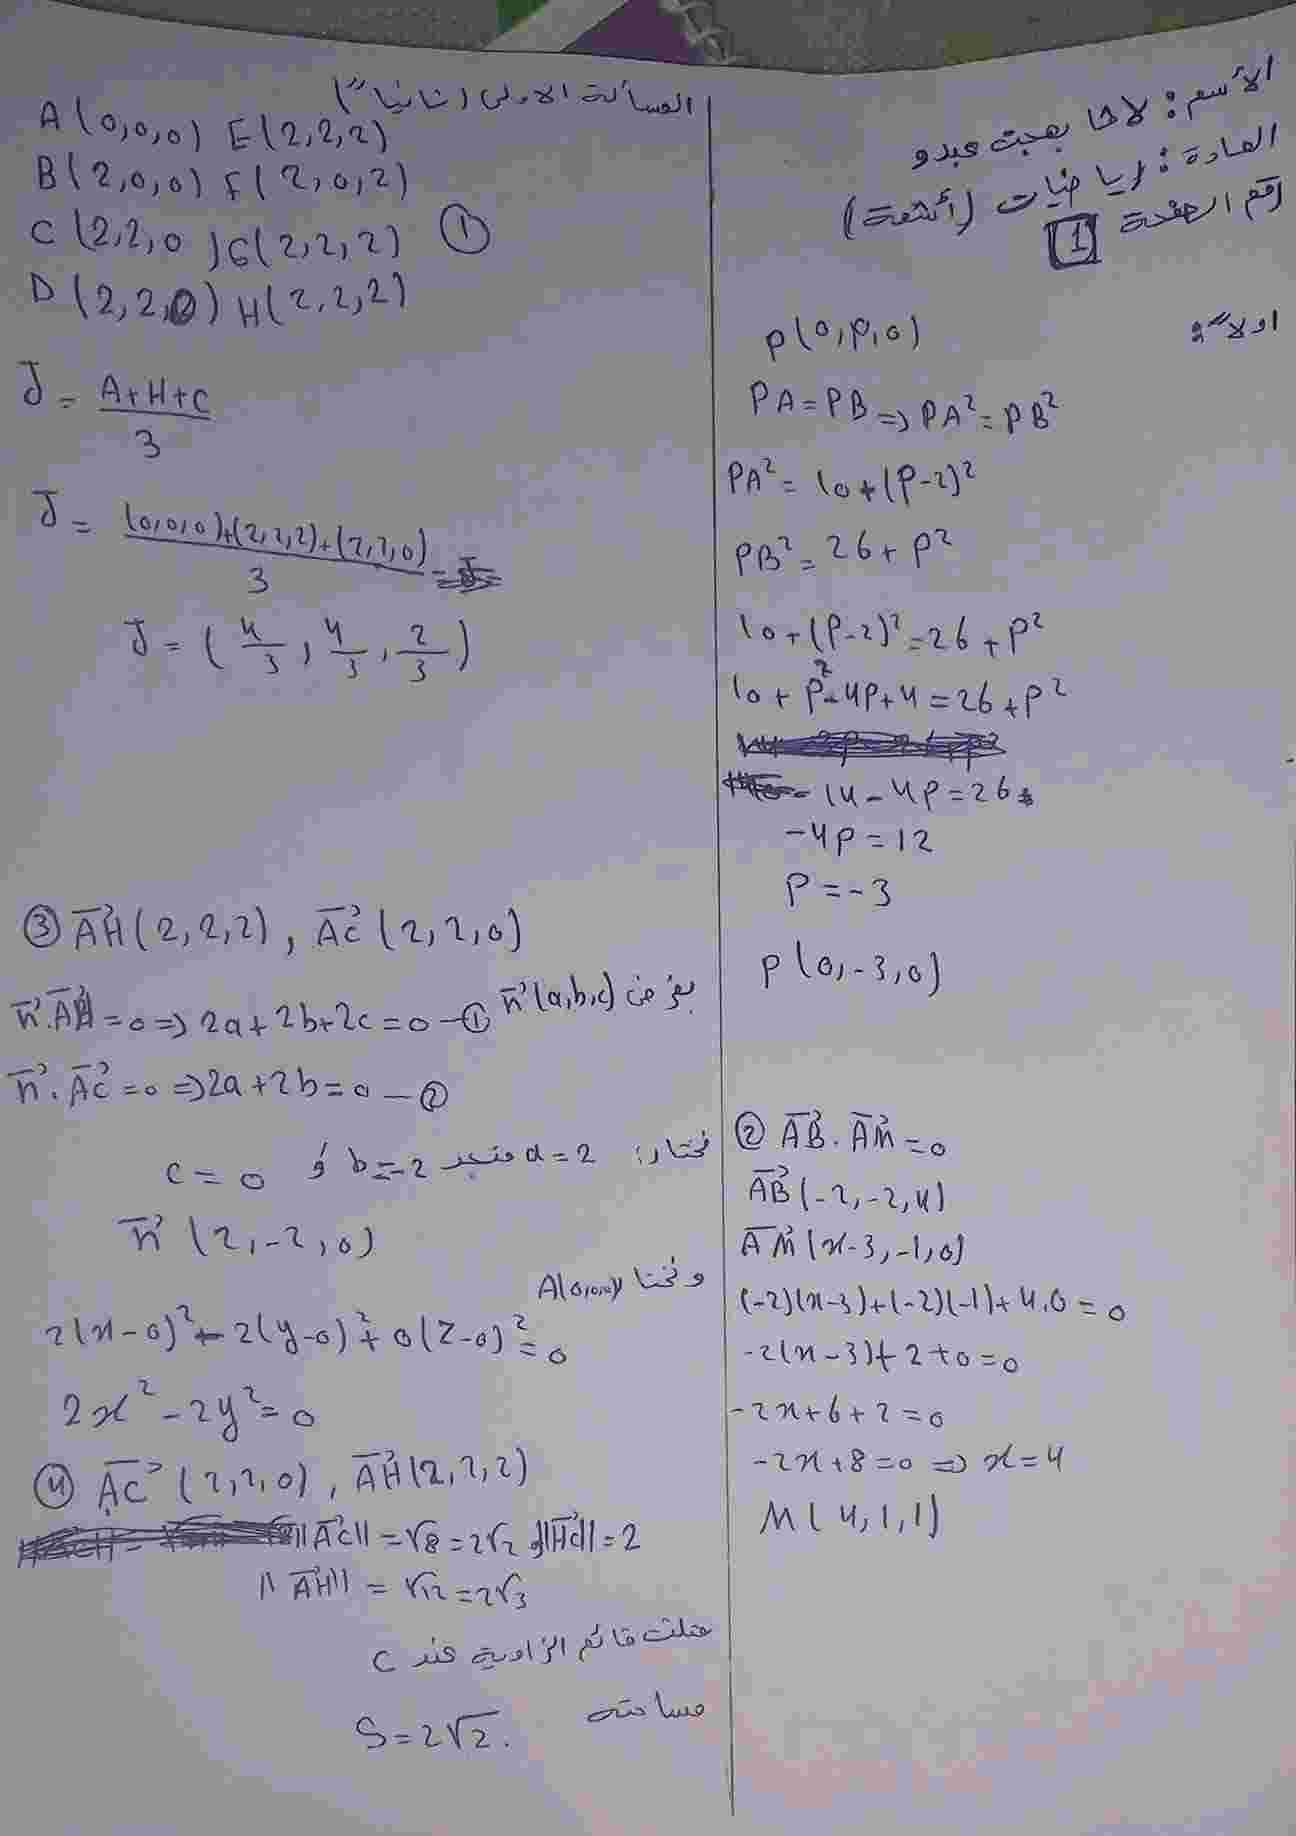 الأسم: لانا بهجت عبدو
المادة: رياضيات (أتمتة)
رقم الصفحة 1
اولاً:
P(0,P,0)
PA=PB⇒PA²=PB²
PA²=10+(P-2)²
PB²=26+P²
10+(P-2)²=26+P²
10+P²-4P+4=26+P²
14-4P=26
-4P=12
P=-3
P(0,-3,0)
② AB⃗.AM⃗=0
AB⃗(-2,-2,4)
AM⃗(x-3,-1,0)
(-2)(x-3)+(-2)(-1)+4.0=0
-2(x-3)+2+0=0
-2x+6+2=0
-2x+8=0⇒x=4
M(4,1,1)
المسألة الاولى (ثانياً)
A(0,0,0) E(2,2,2)
B(2,0,0) F(2,0,2)
C(2,2,0) G(2,2,2) ①
D(2,2,0) H(2,2,2)
J=(A+H+C)/3
J=((0,0,0)+(2,2,2)+(2,2,0))/3
J=(4/3,4/3,2/3)
③ AH⃗(2,2,2), AC⃗(2,2,0)
بفرض n⃗(a,b,c)
n⃗.AH⃗=0⇒2a+2b+2c=0-①
n⃗.AC⃗=0⇒2a+2b=0-②
نختار: a=2 فنجد b=-2 و c=0
n⃗(2,-2,0)
ونختار A(0,0,0)
2(x-0)²-2(y-0)²+0(z-0)²=0
2x²-2y²=0
④ AC⃗(2,2,0), AH⃗(2,2,2)
||AC⃗||=√8=2√2 و ||HC⃗||=2
||AH⃗||=√12=2√3
مثلث قائم الزاوية عند C
مساحته
S=2√2.